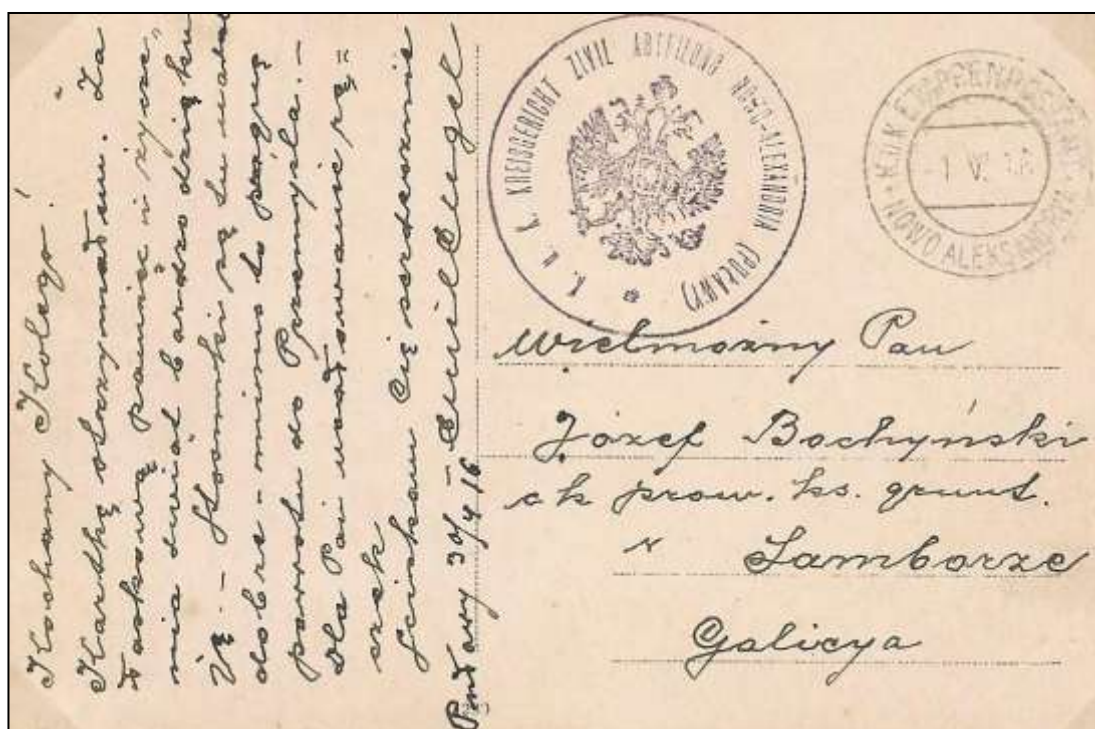 Kochany Kolego!
Kartkę otrzymałem. Za
łaskawą pamięć i życze„
nia świąt bardzo dzięku
ję. – Stosunki są tu
dobre – mimo to pragnę
powrotu do Przemyśla. –
Dla Pani ucałowanie rą=
czek
Ściskam Cię serdecznie
Puławy 30/4 16 – Emil
K. u. K. KREISGERICHT ZIVIL ABTEILUNG NOWO-ALEXANDRIA (PUŁAWY)
K.U.K. ETAPPENPOSTAMT
-1 V. 16
NOWO ALEKSANDRYA
Wielmożny Pan
Józef Bochyński
ck prow. ks. grunt.
w Samborze
Galicya